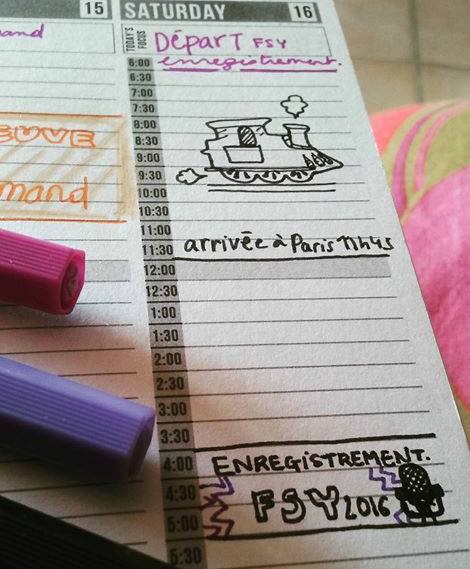 15
SATURDAY 16
TODAY'S FOCUS
Départ FSY
enregistrement.
6:00
6:30
7:00
7:30
8:00
8:30
9:00
9:30
10:00
10:30
11:00
11:30 arrivée à Paris 11h45
12:00
12:30
1:00
1:30
2:00
2:30
3:00
3:30
4:00 ENREGiSTREMENT.
4:30 FSY 2016
5:00
5:30